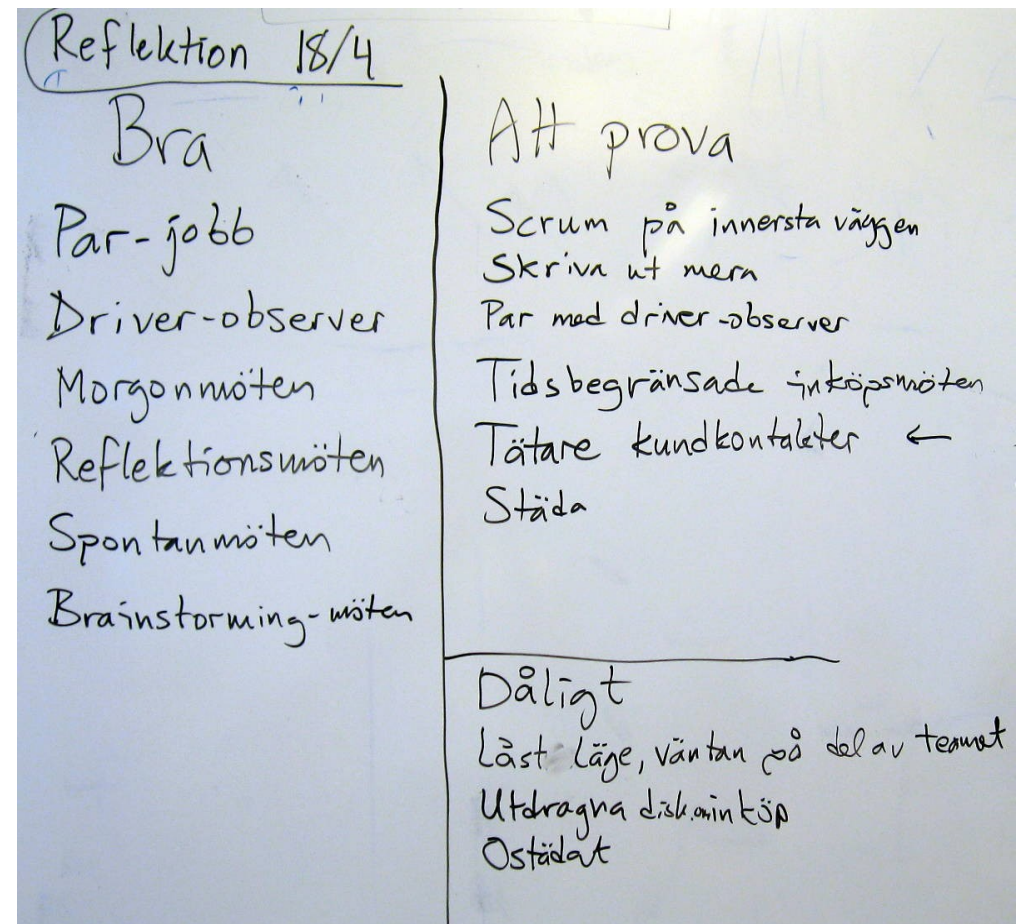 Reflektion 18/4
Bra
Par-jobb
Driver-observer
Morgonmöten
Reflektionsmöten
Spontanmöten
Brainstorming-möten
Att prova
Scrum på innersta väggen
Skriva ut mera
Par med driver-observer
Tidsbegränsade inköpsmöten
Tätare kundkontakter ←
Städa
Dåligt
Låst läge, väntan på del av teamet
Utdragna disk. om inköp
Ostädat